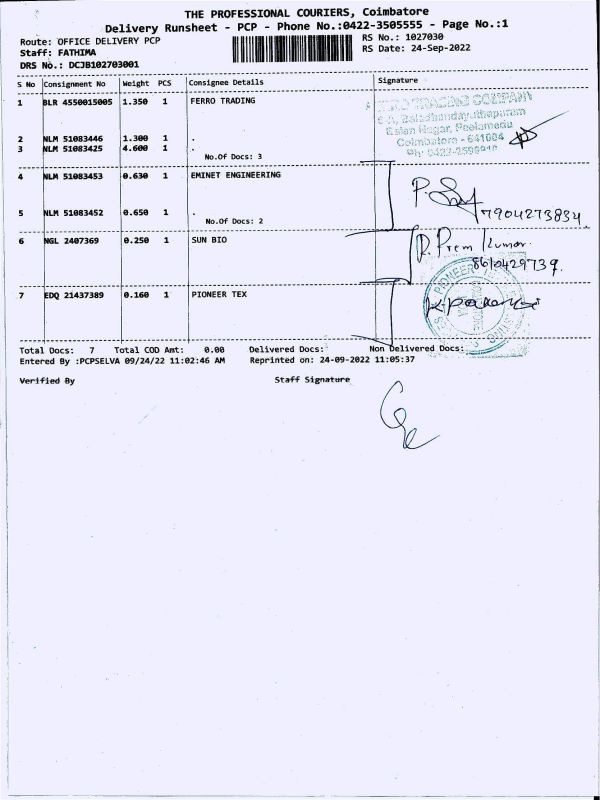 THE PROFESSIONAL COURIERS, Coimbatore
Delivery Runsheet - PCP - Phone No.:0422-3505555 - Page No.:1
Route: OFFICE DELIVERY PCP RS No.: 1027030
Staff: FATHIMA RS Date: 24-Sep-2022
DRS No.: DCJB102703001
S No Consignment No Weight PCS Consignee Details Signature
1 BLR 4550015005 1.350 1 FERRO TRADING
TRADING COMPANY
Coimbatore - 641004
2 NLM 51083446 1.300 1 .
3 NLM 51083425 4.600 1 .
No.Of Docs: 3
4 NLM 51083453 0.630 1 EMINET ENGINEERING
5 NLM 51083452 0.650 1 .
No.Of Docs: 2
7904273834
6 NGL 2407369 0.250 1 SUN BIO
R. Prem Kumar
8610429739.
7 EDQ 21437389 0.160 1 PIONEER TEX
PIONEER
Total Docs: 7 Total COD Amt: 0.00 Delivered Docs: Non Delivered Docs:
Entered By :PCPSELVA 09/24/22 11:02:46 AM Reprinted on: 24-09-2022 11:05:37
Verified By Staff Signature